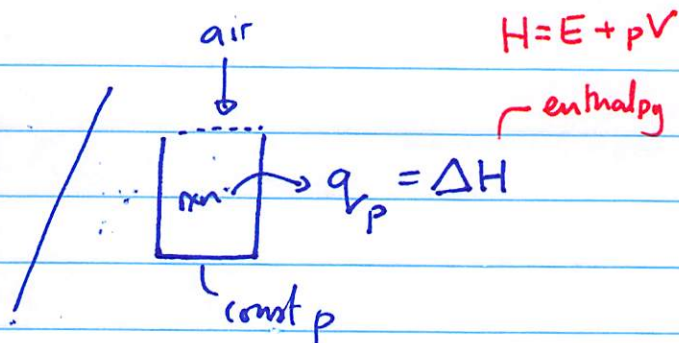 air
H = E + pV
enthalpy
rxn
q_p = ΔH
const p